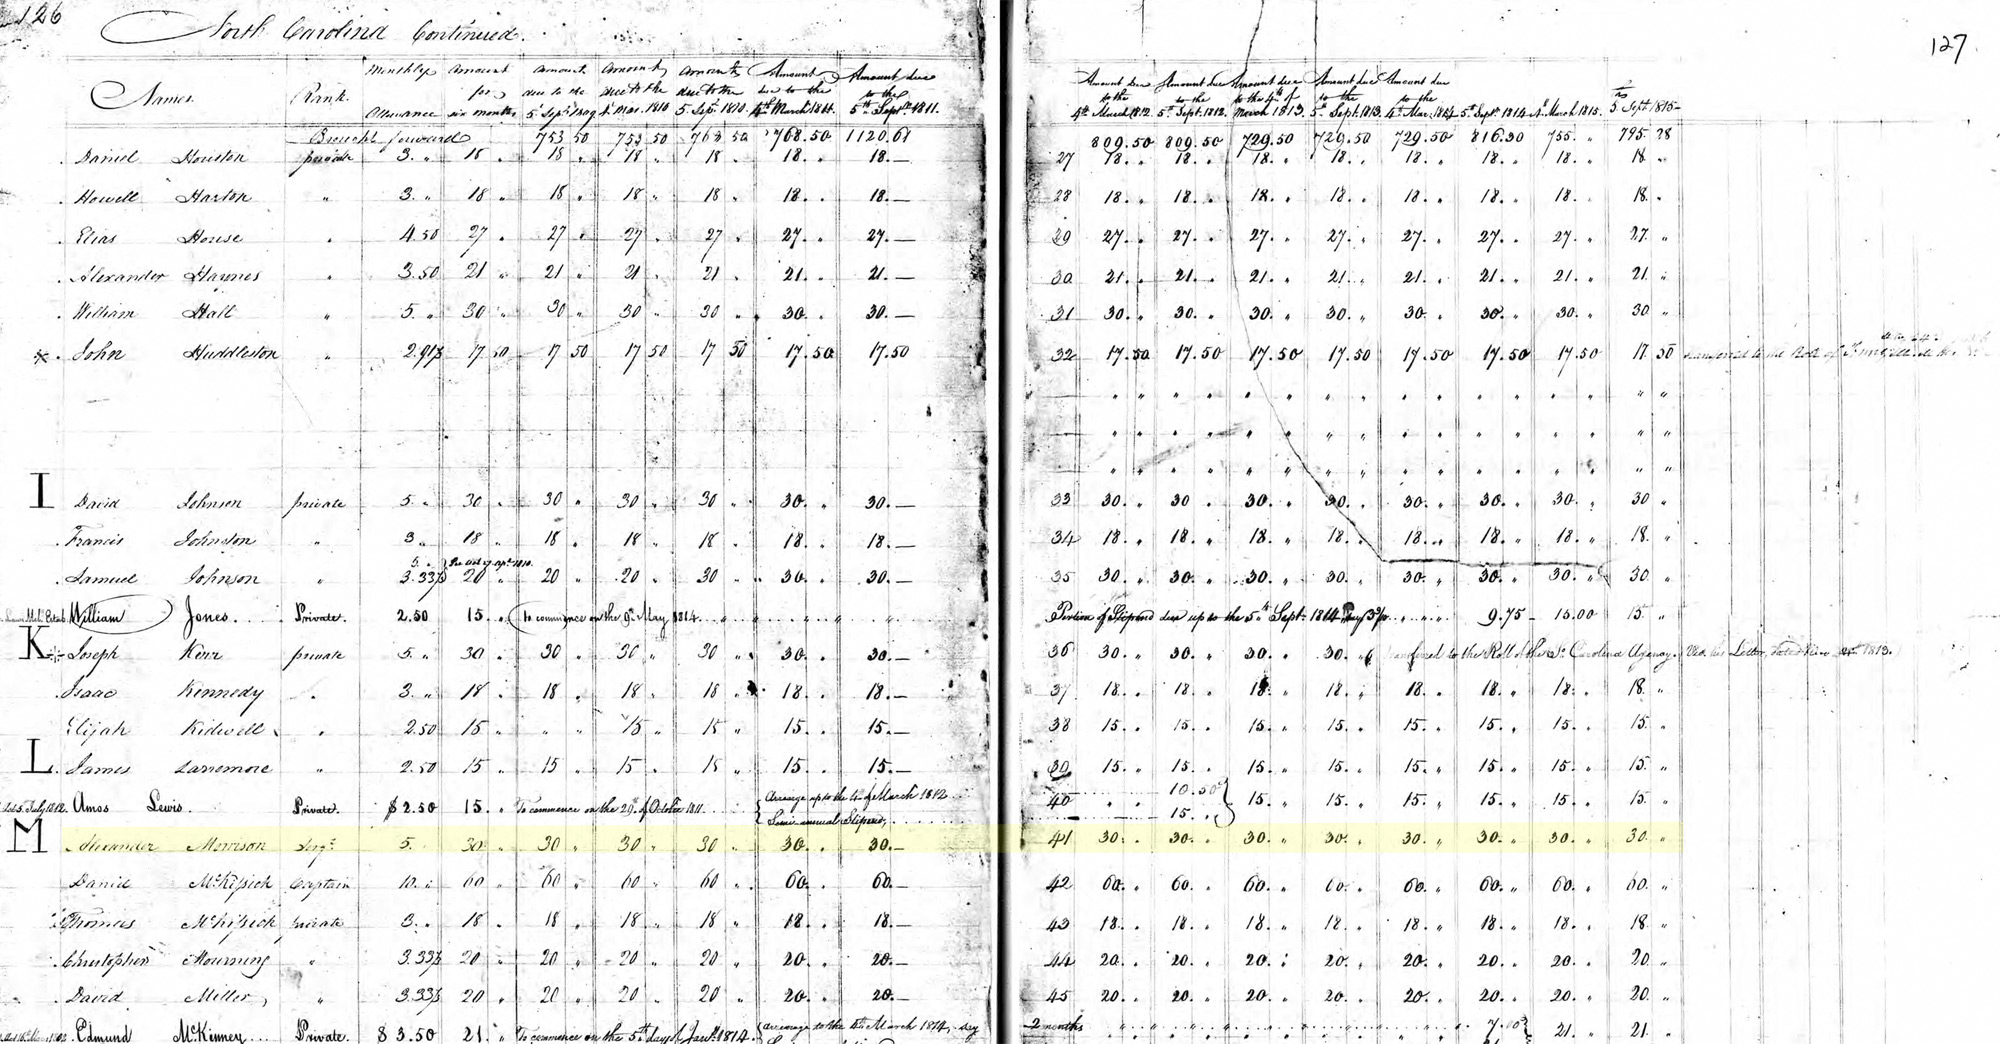 126
North Carolina Continued.
127
Names. Rank. Monthly Allowance Amount for six months Amount due to the 5 Sept. 1809 Amount due to the 4 Mar. 1810 Amount due to the 5 Sept. 1810 Amount due to the 4th March 1811. Amount due to the 5th Sept. 1811. Amount due to the 4th March 1812. Amount due to the 5th Sept. 1812. Amount due to the 4th of March 1813. Amount due to the 5th Sept. 1813. Amount due to the 4th Mar. 1814 5th Sept. 1814 4th March 1815. to 5 Sept 1815
Brought forward 753 50 753 50 768 50 768.50 1120.61 809.50 809.50 729.50 729.50 729.50 816.30 755. " 795 28
Daniel Houston private 3. " 18 " 18 " 18 " 18 " 18. " 18.— 27 18. " 18. " 18. " 18. " 18. " 18. " 18. " 18 "
Howell Harton " 3. " 18 " 18 " 18 " 18 " 18. " 18.— 28 18. " 18. " 18. " 18. " 18. " 18. " 18. " 18. "
Elias House " 4.50 27 " 27 " 27 " 27 " 27. " 27.— 29 27. " 27. " 27. " 27. " 27. " 27. " 27. " 27. "
Alexander Haynes " 3.50 21 " 21 " 21 " 21 " 21. " 21.— 30 21. " 21. " 21. " 21. " 21. " 21. " 21. " 21. "
William Hall " 5. " 30 " 30 " 30 " 30 " 30. " 30.— 31 30. " 30. " 30. " 30. " 30. " 30. " 30. " 30 "
John Huddleston " 2.91⅔ 17 50 17 50 17 50 17 50 17.50 17.50 32 17.50 17.50 17.50 17.50 17.50 17.50 17.50 17. 50 transferred to the Roll of
I David Johnson private 5. " 30 " 30 " 30 " 30 " 30. " 30.— 33 30. " 30 " 30. " 30. " 30. " 30. " 30. " 30 "
Francis Johnston " 3 " 18 " 18 " 18 " 18 " 18. " 18.— 34 18. " 18. " 18. " 18. " 18. " 18. " 18. " 18. "
5. " Per Act 27 Apr. 1810.
Samuel Johnson " 3.33⅓ 20 " 20 " 20 " 30 " 30. " 30.— 35 30. " 30. " 30. " 30. " 30. " 30. " 30. " 30. "
William Jones. Private. 2.50 15 " To commence on the 9th May 1814 Portion of Stipend due up to the 5th Sept. 1814 9.75 15.00 15 "
K Joseph Kerr private 5. " 30 " 30 " 30 " 30 " 30. " 30.— 36 30. " 30. " 30. " 30. " transferred to the Roll of the So. Carolina Agency. 1813.
Isaac Kennedy " 3. " 18 " 18 " 18 " 18 " 18. " 18.— 37 18. " 18. " 18. " 18. " 18. " 18. " 18. " 18. "
Elijah Kidwell " 2.50 15 " " " 15 " 15 " 15. " 15.— 38 15. " 15. " 15. " 15. " 15. " 15. " 15. " 15. "
L James Larremore " 2.50 15 " 15 " 15 " 15 " 15. " 15.— 39 15. " 15. " 15. " 15. " 15. " 15. " 15. " 15. "
5. July 1812. Amos Lewis. Private. $2.50 15. " To commence on the 29th of October 1811 Arrearage up to the 4 of March 1812 40 10.50 15. " 15. " 15. " 15. " 15. " 15. "
Semi annual Stipend, 15. "
M Alexander Morrison Sergt. 5. 30 " 30 " 30 " 30 " 30. " 30.— 41 30. " 30. " 30. " 30. " 30. " 30. " 30. " 30. "
Daniel McKissick Captain 10. " 60 " 60 " 60 " 60 " 60. " 60.— 42 60. " 60. " 60. " 60. " 60. " 60. " 60. " 60. "
Thomas McKissick private 3. " 18 " 18 " 18 " 18 " 18. " 18.— 43 18. " 18. " 18. " 18. " 18. " 18. " 18. " 18. "
Christopher Mourning " 3.33⅓ 20 " 20 " 20 " 20 " 20. " 20.— 44 20. " 20. " 20. " 20. " 20. " 20. " 20. " 20 "
David Miller, " 3.33⅓ 20 " 20 " 20 " 20 " 20. " 20.— 45 20. " 20. " 20. " 20. " 20. " 20. " 20. " 20. "
Edmund McKinney Private. $3.50 21. " To commence on the 5th day of Jany. 1814. Arrearage to the 4th March 1814, say 2 months 7.00 21. " 21. "